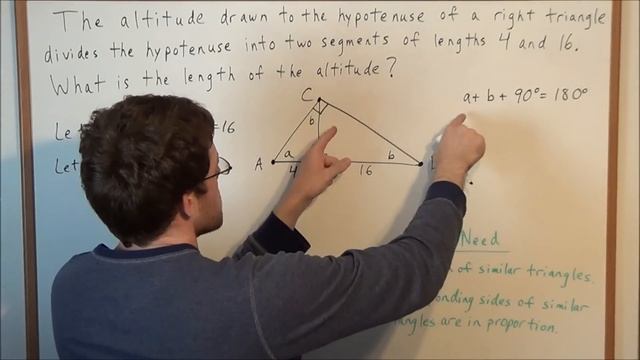 The altitude drawn to the hypotenuse of a right triangle
divides the hypotenuse into two segments of lengths 4 and 16.
What is the length of the altitude?
C
a + b + 90° = 180°
b
=16
A
a
b
4
16
Need
of similar triangles.
sides of similar
are in proportion.